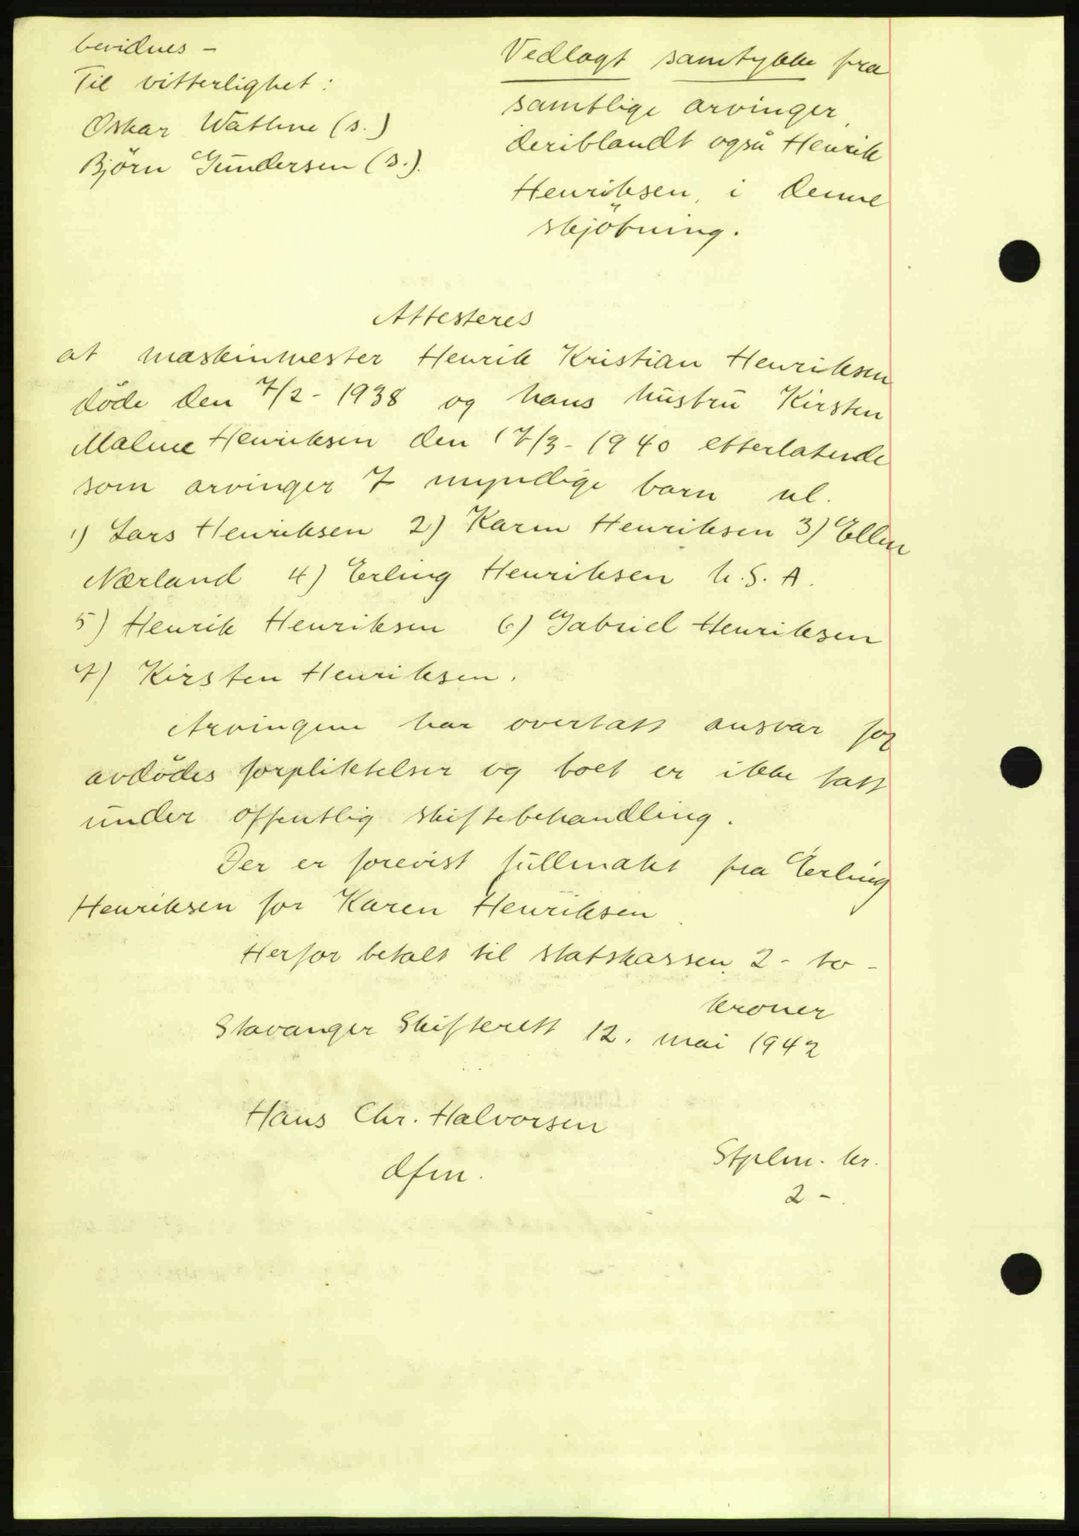 bevidnes –
Til vitterlighet:
Oskar Wathne (s.)
Björn Gundersen (s.).
Vedlagt samtykke fra
samtlige arvinger,
deriblandt også Henrik
Henriksen, i denne
skjötning.
Attesteres
at maskinmester Henrik Kristian Henriksen
döde den 7/2 - 1938 og hans hustru Kirsten
Malene Henriksen den 17/3 - 1940 etterlatende
som arvinger 7 myndige barn nl.
1) Lars Henriksen 2) Karen Henriksen 3) Ellen
Nærland 4) Erling Henriksen U.S.A.
5) Henrik Henriksen 6) Gabriel Henriksen
7) Kirsten Henriksen.
Arvingene har overtatt ansvar for
avdödes forpliktelser og boet er ikke tatt
under offentlig skiftebehandling.
Der er forevist fullmakt fra Erling
Henriksen for Karen Henriksen.
Herfor betalt til statskassen 2 - to -
kroner
Stavanger Skifterett 12. mai 1942
Hans Chr. Halvorsen
dfm.
Stplm. kr.
2 -.